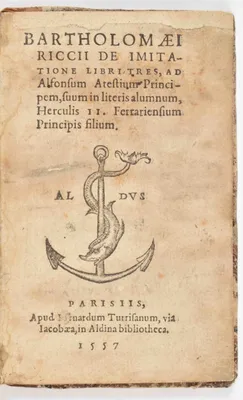 BARTHOLOMÆI
RICCII DE IMITA-
TIONE LIBRI TRES, AD
Alfonsum Atestium Princi-
pem, suum in literis alumnum,
Herculis II. Ferrariensium
Principis filium.
AL DVS
PARISIIS,
Apud Bernardum Turrisanum, via
Iacobæa, in Aldina bibliotheca.
1557